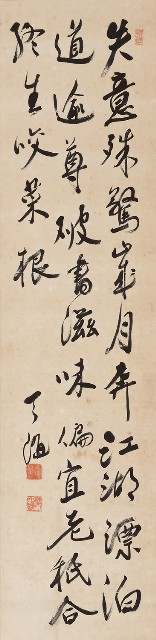 失意殊驚歲月奔江湖漂泊
道逾尊破書滋味偏宜老秖合
終生咬菜根